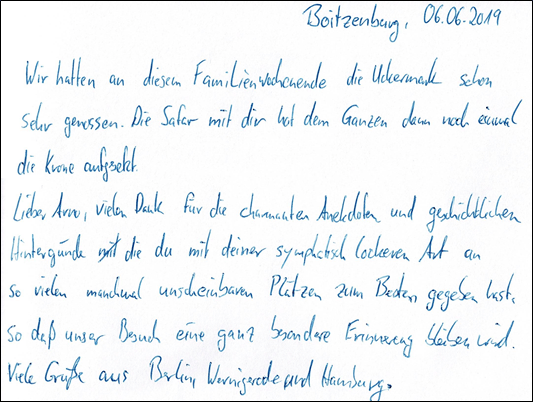 Boitzenburg, 06.06.2019
Wir hatten an diesem Familienwochenende die Uckermark schon
sehr genossen. Die Safari mit dir hat dem Ganzen dann noch einmal
die Krone aufgesetzt.
Lieber Arno, vielen Dank für die charmanten Anekdoten und geschichtlichen
Hintergründe die du mit deiner sympathisch lockeren Art an
so vielen manchmal unscheinbaren Plätzen zum Besten gegeben hast,
so daß unser Besuch eine ganz besondere Erinnerung bleiben wird.
Viele Grüße aus Berlin, Wernigerode und Hamburg.